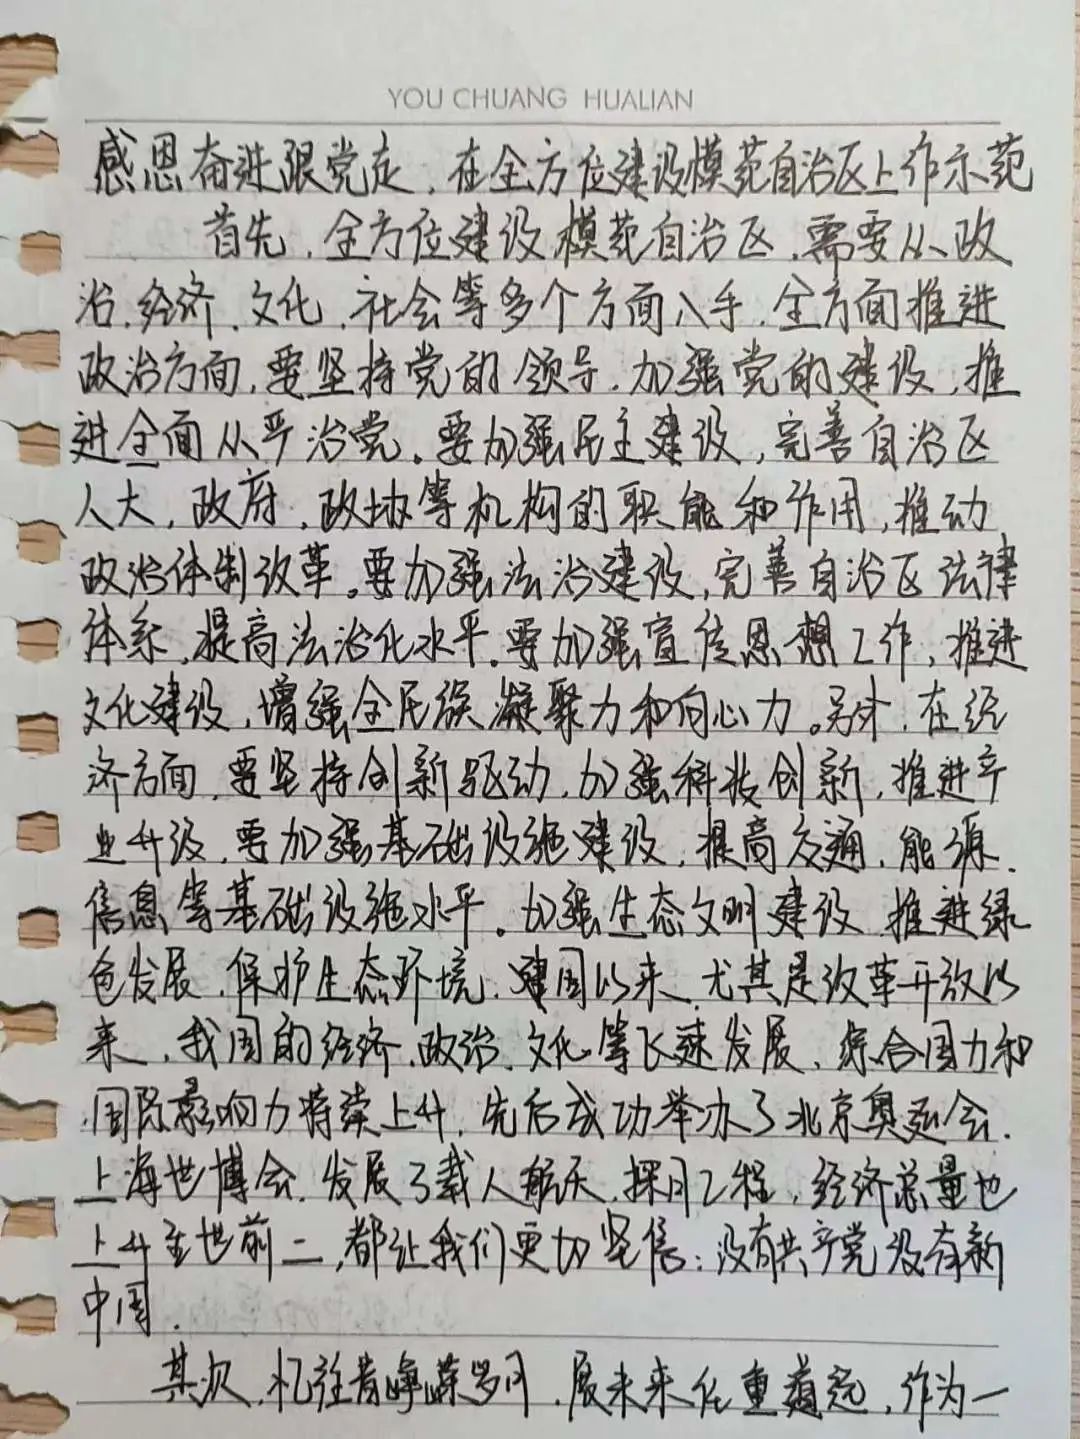 YOU CHUANG HUALIAN
感恩奋进跟党走,在全方位建设模范自治区上作示范
首先,全方位建设模范自治区,需要从政
治、经济、文化、社会等多个方面入手,全方面推进
政治方面,要坚持党的领导,加强党的建设,推
进全面从严治党。要加强民主建设,完善自治区
人大,政府,政协等机构的职能和作用,推动
政治体制改革。要加强法治建设,完善自治区法律
体系,提高法治化水平。要加强宣传思想工作,推进
文化建设,增强全民族凝聚力和向心力。另外,在经
济方面,要坚持创新驱动,加强科技创新,推进产
业升级,要加强基础设施建设,提高交通,能源,
信息等基础设施水平。加强生态文明建设,推进绿
色发展,保护生态环境,建国以来,尤其是改革开放以
来,我国的经济,政治,文化等飞速发展,综合国力和
国际影响力持续上升,先后成功举办了北京奥运会,
上海世博会,发展了载人航天,探月工程,经济总量也
上升至世前二,都让我们更加坚信:没有共产党没有新
中国.
其次,忆往昔峥嵘岁月,展未来任重道远,作为一